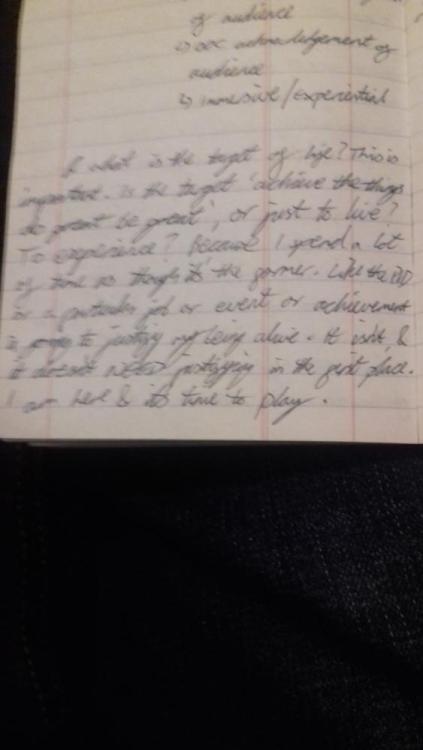 of audience
↳ acknowledgement of
audience
↳ immersive / experiential
& what is the target of life? This is
important. Is the target 'achieve the things
do great be great', or just to live?
To experience? Because I spend a lot
of time as though its the former. Like the PhD
or a particular job or event or achievement
is going to justify my being alive. It isnt &
it doesnt NEED justifying in the first place.
I am here & its time to play.